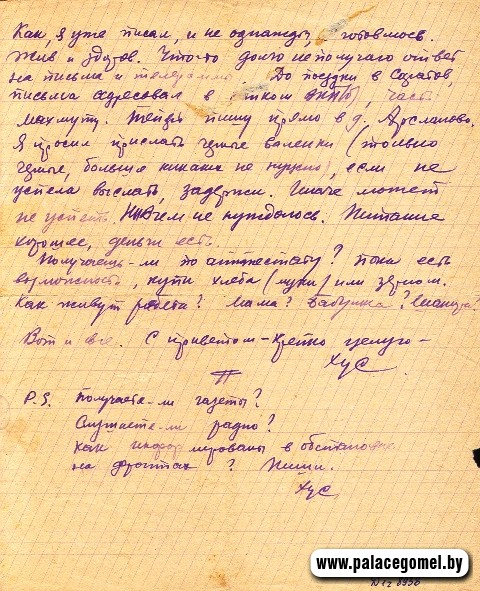 Как, я уже писал, и не однажды, готовлюсь.
Жив и здоров. Что-то долго не получаю ответ
на письма и телеграммы. До поездки в Саратов,
письма адресовал в
Махмуту. Теперь пишу прямо в д. Арсланово.
Я просил прислать черные валенки (только
черные, больше никаких не нужно), если не
успела выслать, задержи. Иначе может
не успеть. Ни в чем не нуждаюсь. Питание
хорошее, деньги есть.
Получаешь-ли по аттестату? Пока есть
возможность, купи хлеба (муки) или зерном.
Как живут ребята? Мама? Бабушка?
Вот и все. С приветом – крепко целую –
Хус
P.S. Получаете-ли газеты?
Слушаете-ли радио?
Как информированы в обстановке
на фронтах? Пиши.
Хус
www.palacegomel.by